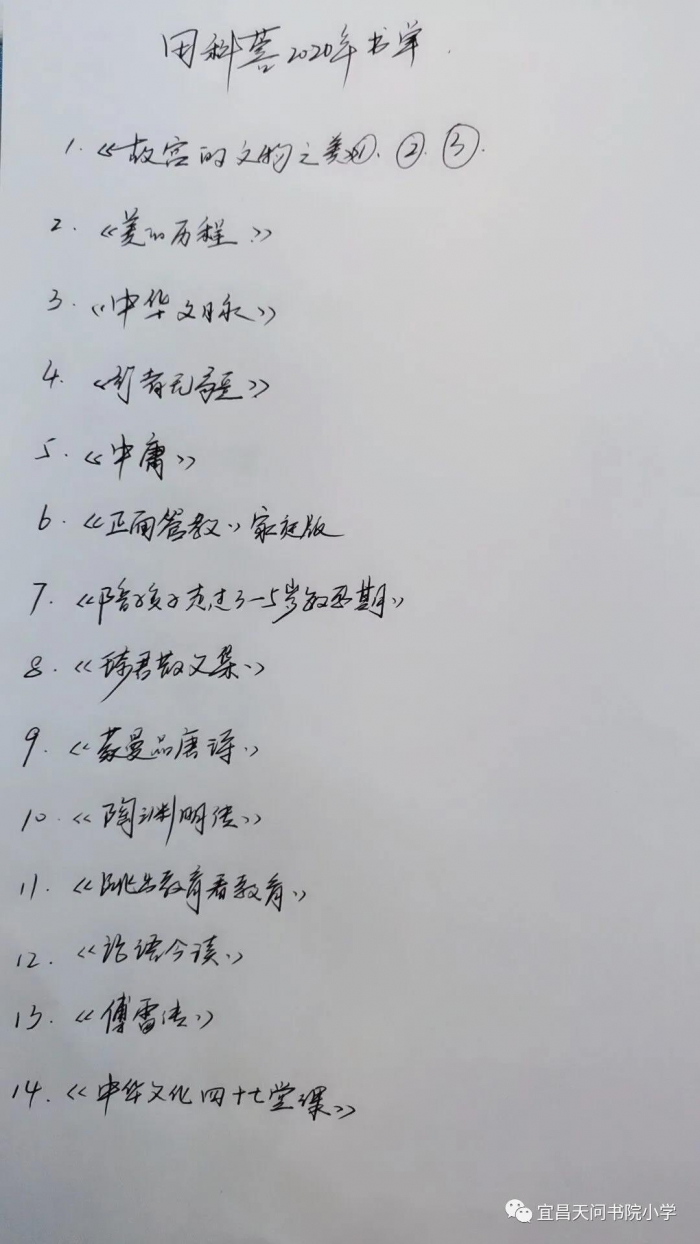 田科蓉2020年书单
1.《故宫的文物之美》①、②、③.
2.《美的历程》
3.《中华文脉》
4.《行者无疆》
5.《中庸》
6.《正面管教》家庭版
7.《陪孩子走过3-5岁敏感期》
8.《琦君散文集》
9.《蒙曼品唐诗》
10.《陶渊明传》
11.《跳出教育看教育》
12.《论语今读》
13.《傅雷传》
14.《中华文化四十七堂课》
宜昌天问书院小学